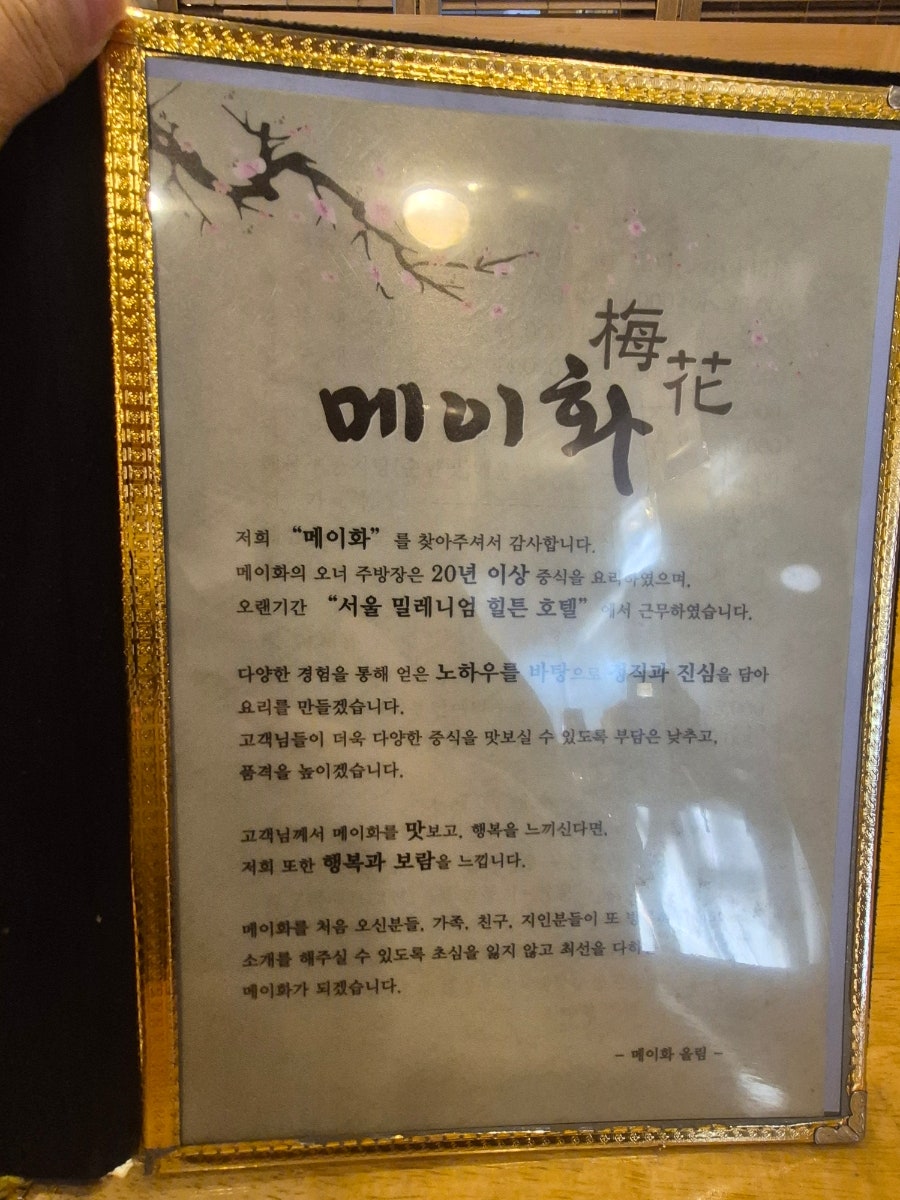 梅花
메이화
저희 “메이화” 를 찾아주셔서 감사합니다.
메이화의 오너 주방장은 20년 이상 중식을 요리하였으며,
오랜기간 “서울 밀레니엄 힐튼 호텔” 에서 근무하였습니다.
다양한 경험을 통해 얻은 노하우를 바탕으로 정직과 진심을 담아
요리를 만들겠습니다.
고객님들이 더욱 다양한 중식을 맛보실 수 있도록 부담은 낮추고,
품격을 높이겠습니다.
고객님께서 메이화를 맛보고, 행복을 느끼신다면,
저희 또한 행복과 보람을 느낍니다.
메이화를 처음 오신분들, 가족, 친구, 지인분들이 또
소개를 해주실 수 있도록 초심을 잃지 않고 최선을
메이화가 되겠습니다.
- 메이화 올림 -